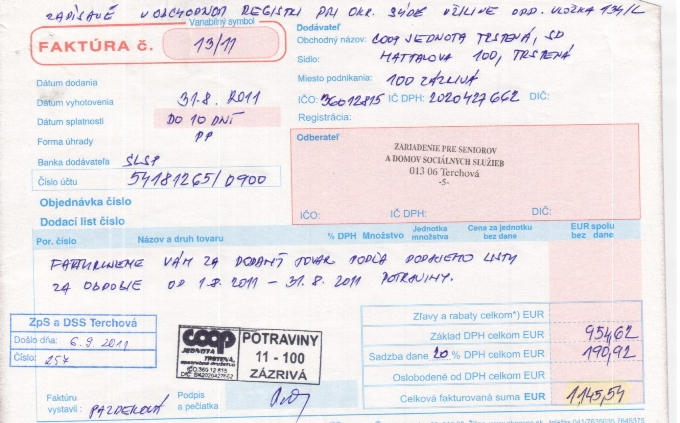 ZAPÍSANÉ V OBCHODNOM REGISTRI PRI OKR. SÚDE V ŽILINE ODD. VLOŽKA 134/L
Variabilný symbol
FAKTÚRA č. 13/11
Dodávateľ
Obchodný názov: COOP JEDNOTA TRSTENÁ, SD
Sídlo: HATTALOVA 100, TRSTENÁ
Miesto podnikania: 100 ZÁZRIVÁ
IČO: 36012815 IČ DPH: 2020427662 DIČ:
Registrácia:
Dátum dodania
Dátum vyhotovenia 31.8. 2011
Dátum splatnosti DO 10 DNÍ
Forma úhrady PP
Banka dodávateľa SLSP
Číslo účtu 54181265/0900
Objednávka číslo
Dodací list číslo
Odberateľ
ZARIADENIE PRE SENIOROV
A DOMOV SOCIÁLNYCH SLUŽIEB
013 06 Terchová
-5-
IČO: IČ DPH: DIČ:
Por. číslo Názov a druh tovaru % DPH Množstvo Jednotka množstva Cena za jednotku bez dane EUR spolu bez dane
FAKTURUJEME VÁM ZA DODANÝ TOVAR PODĽA DODACIEHO LISTU
ZA OBDOBIE OD 1.8. 2011 – 31.8. 2011 POTRAVINY.
Zľavy a rabaty celkom*) EUR
Základ DPH celkom EUR 954,62
Sadzba dane 20 % DPH celkom EUR 190,92
Oslobodené od DPH celkom EUR
Celková fakturovaná suma EUR 1145,54
ZpS a DSS Terchová
Došlo dňa: 6.9.2011
Číslo: 257
COOP
JEDNOTA
TRSTENÁ,
IČO:360 12 815
POTRAVINY
11 - 100
ZÁZRIVÁ
Faktúru vystavil:
Podpis a pečiatka